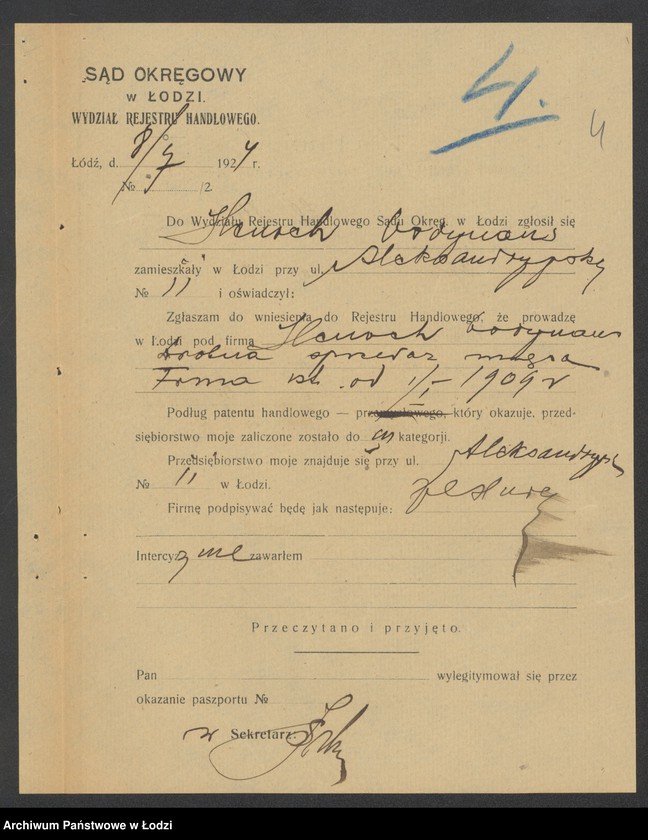 SĄD OKRĘGOWY
w ŁODZI.
WYDZIAŁ REJESTRU HANDLOWEGO.
4.
4
Łódź, d. 8/ 1924 r.
№ /2
Do Wydziału Rejestru Handlowego Sądu Okręg. w Łodzi zgłosił się
Henoch
zamieszkały w Łodzi przy ul. Aleksandryjskej
№ 11 i oświadczył:
Zgłaszam do wniesienia do Rejestru Handlowego, że prowadzę
w Łodzi pod firmą Henoch
drobna sprzedaż mięsa
Firma ist. od 1/I – 1909 r
Podług patentu handlowego — przemysłowego, który okazuje, przed-
siębiorstwo moje zaliczone zostało do kategorji.
Przedsiębiorstwo moje znajduje się przy ul. Aleksandryjsk
№ 11 w Łodzi.
Firmę podpisywać będę jak następuje:
Intercyzy nie zawarłem
Przeczytano i przyjęto.
Pan wylegitymował się przez
okazanie paszportu №
Sekretarz:
Archiwum Państwowe w Łodzi